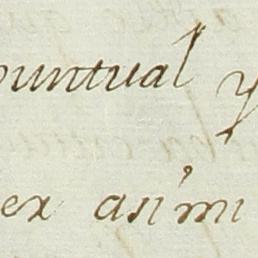 puntual y
ex asimi